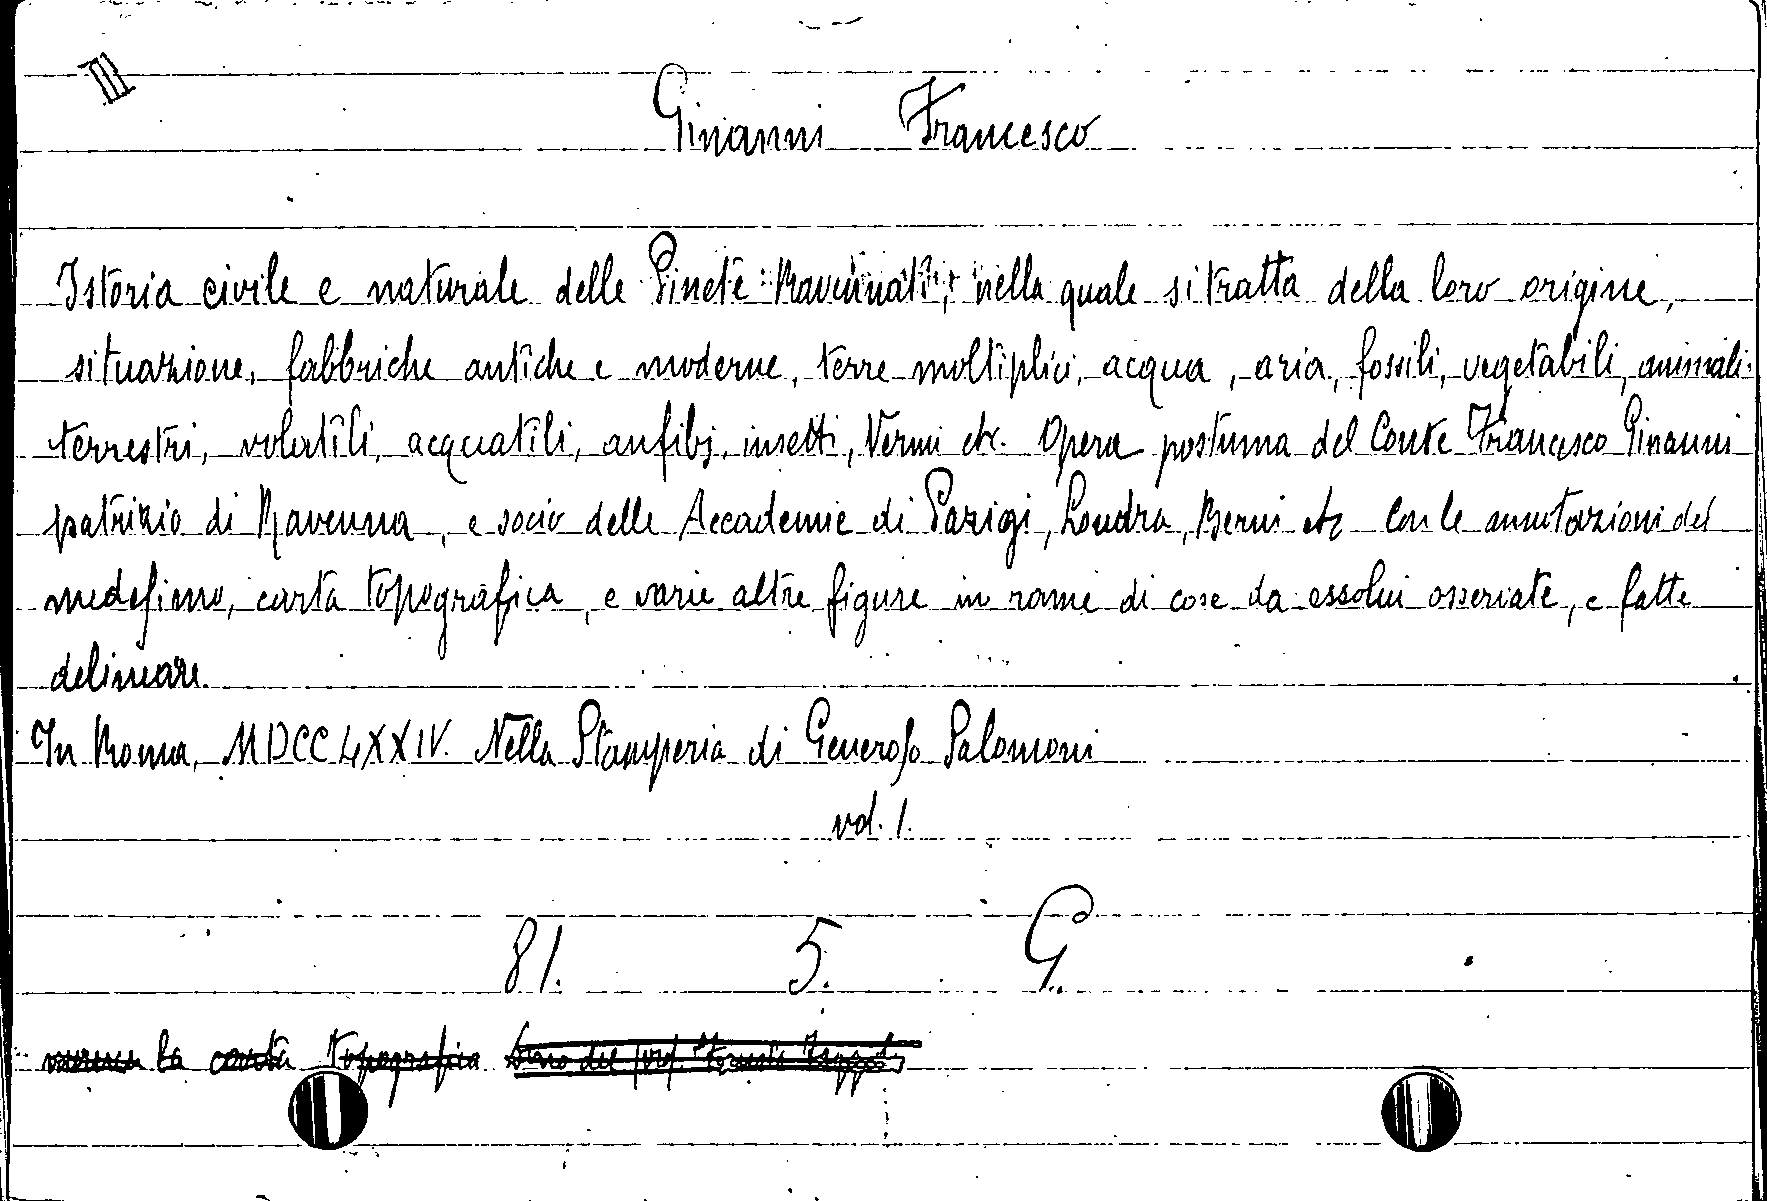 III
Ginanni Francesco
Istoria civile e naturale delle Pinete Ravennati, nella quale si tratta della loro origine,
situazione, fabbriche antiche e moderne, terre moltiplici, acqua, aria, fossili, vegetabili, animali
terrestri, volatili, acquatili, anfibj, insetti, Vermi etc. Opera postuma del Conte Francesco Ginanni
patrizio di Ravenna, e socio delle Accademie di Parigi, Londra, Berni etc Con le annotazioni del
medesimo, carta topografica, e varie altre figure in rame di cose da essolui osservate, e fatte
delineare.
In Roma, MDCCLXXIV. Nella Stamperia di Generoso Salomoni
vol. 1.
81. 5. G.
manca la carta topografica